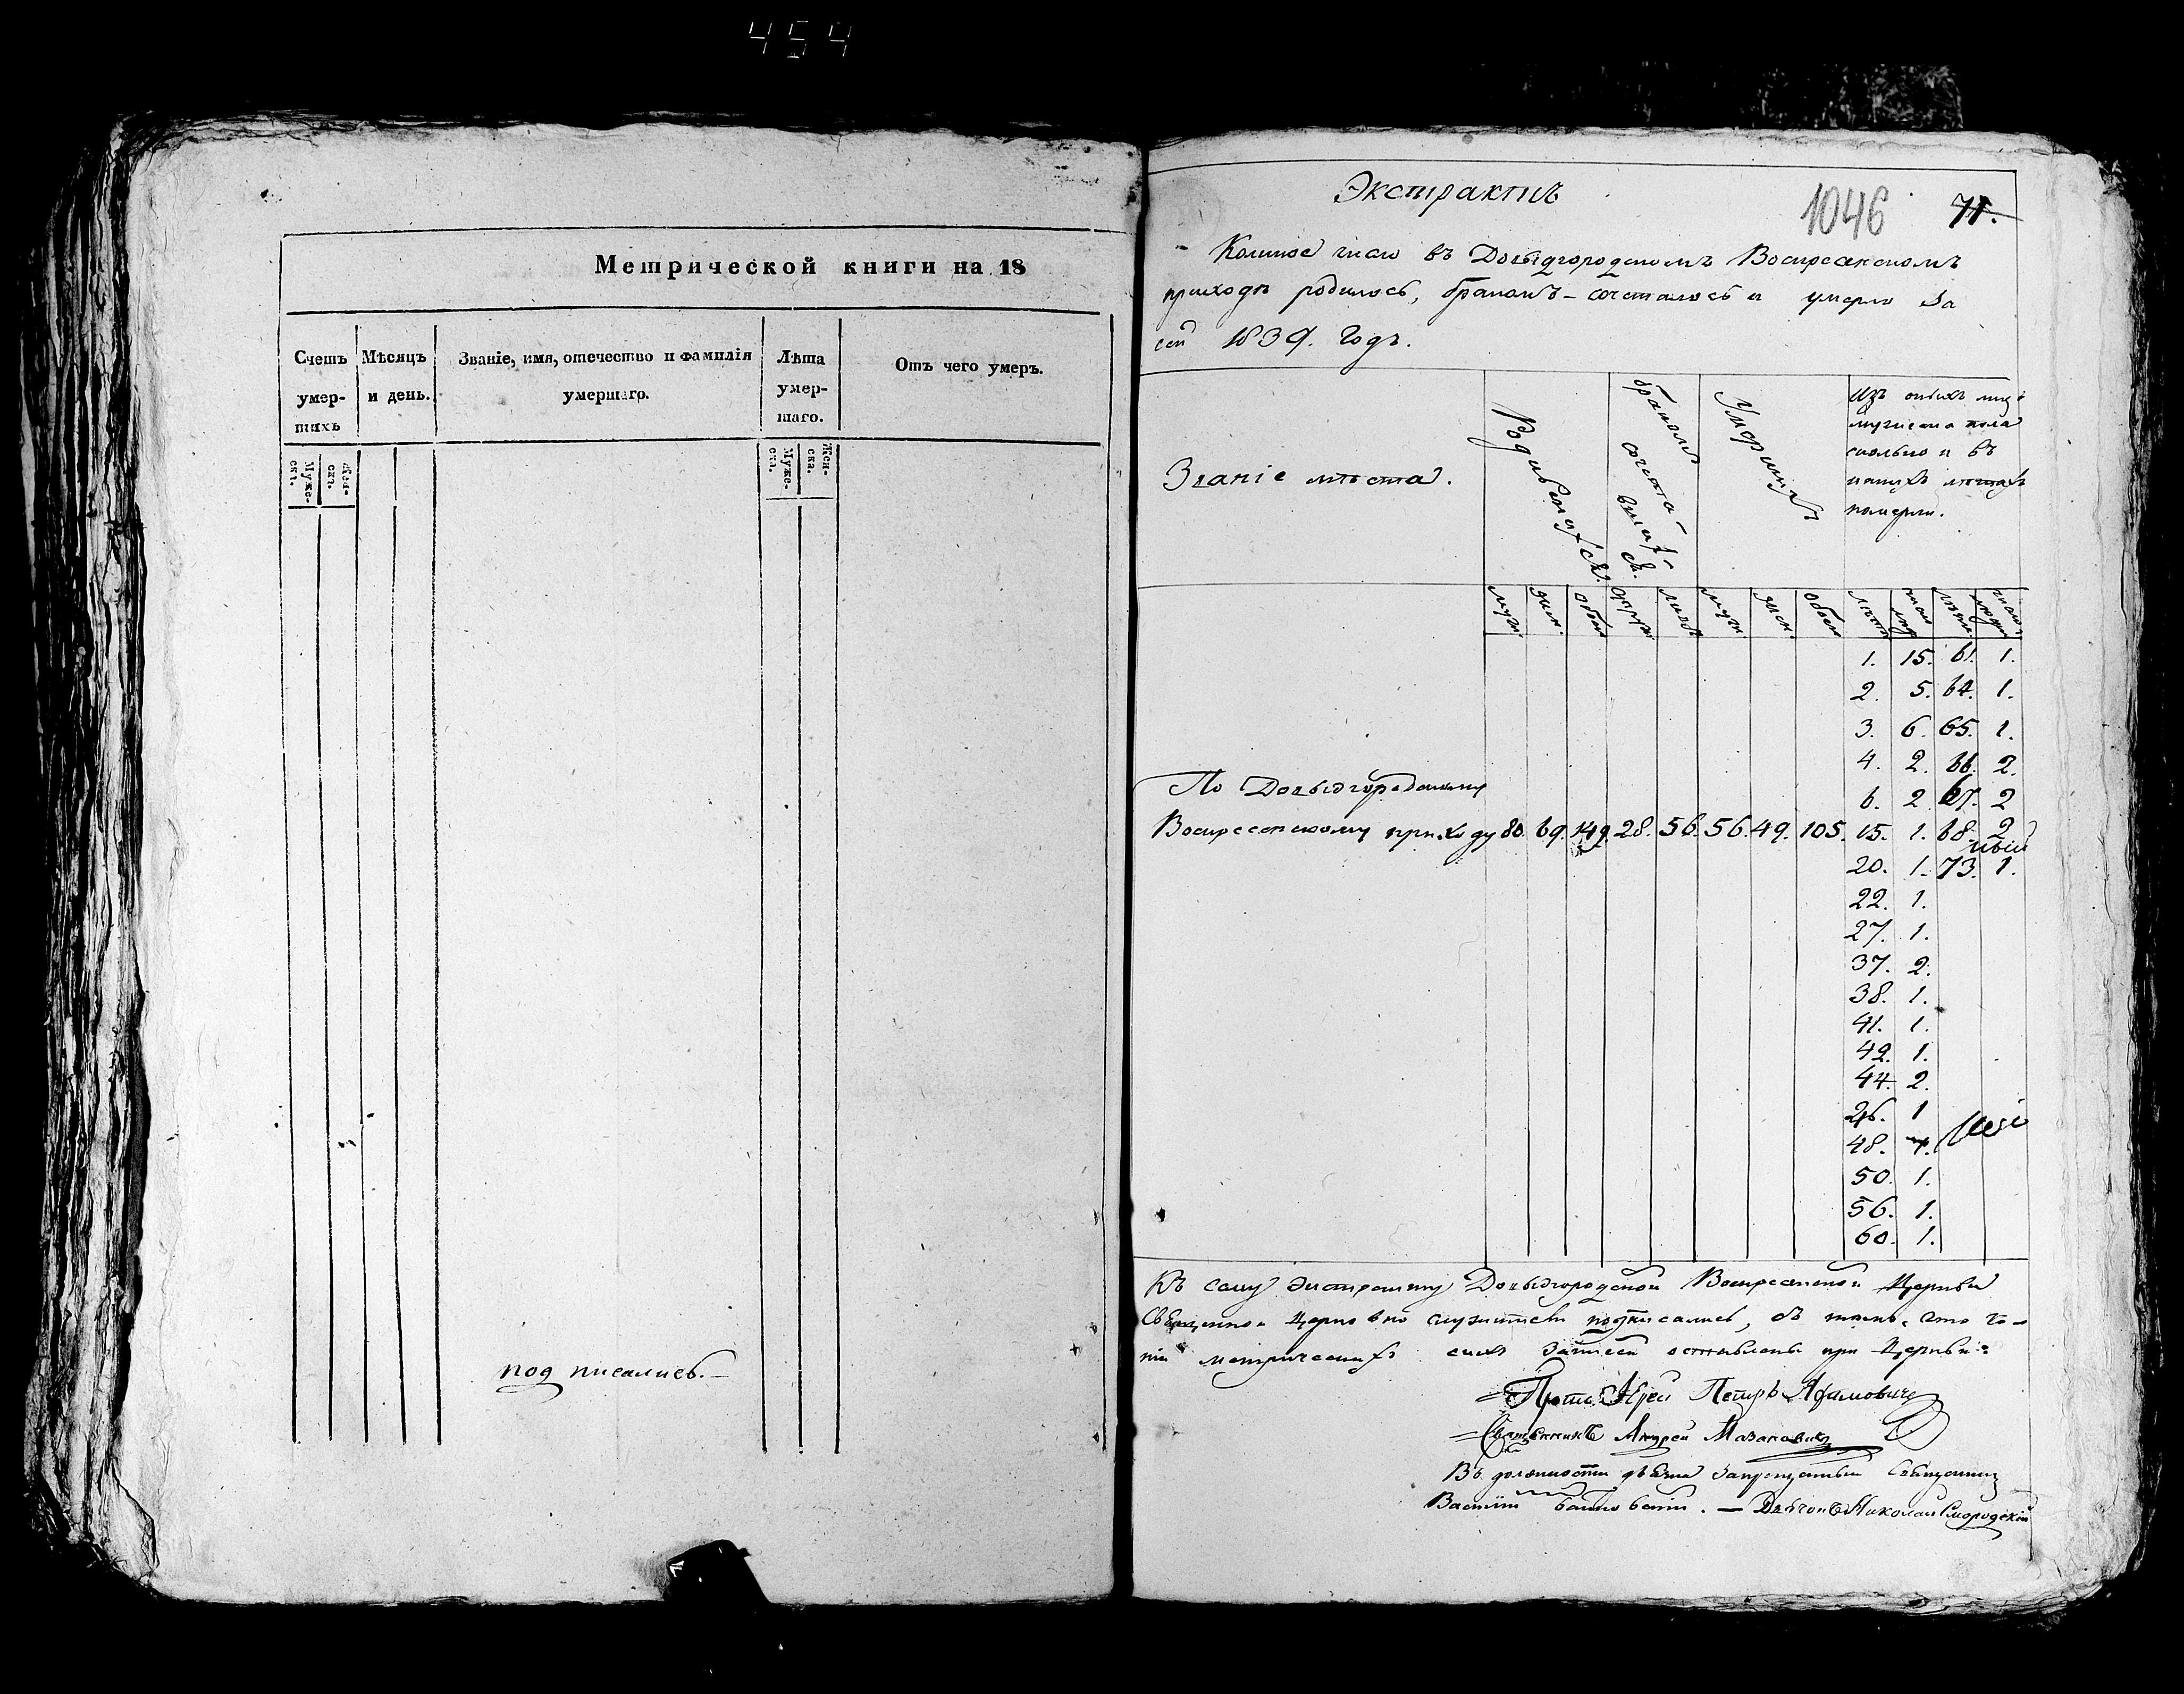 454
Метрической книги на 18
Счетъ умер-шихъ
Мѣсяцъ и день.
Званіе, имя, отечество и фамилія умершаго.
Лѣта умер-шаго.
Отъ чего умеръ.
Муже-ска.
Жен-ска.
Муже-ска.
Жен-ска.
под писались.–
Экстрактъ
1046
71.
Коликое число въ Довыдгородскомъ Воскресенскомъ
приходѣ родилось, бракомъ – сочеталось и умерло за
сей 1839. Годъ.
Званіе мѣста.
Родившихся.
бракомъ сочета-вшихся.
Умершихъ
Изъ
мужеска пола
сколько и въ
какихъ лѣтахъ
померли.
муж. жен. обое муж. жен. обое
1. 15. 61. 1.
2. 5. 64. 1.
3. 6. 65. 1.
4. 2. 66. 2.
6. 2. 67. 2
По Довыдгородскому
Воскресенскому приходу 80. 69. 149. 28. 56. 56. 49. 105. 15. 1. 68. 2
20. 1. 73. 1.
22. 1.
27. 1.
37. 2.
38. 1.
41. 1.
42. 1.
44. 2.
46. 1
48.
50. 1.
56. 1.
60. 1.
Къ сему Экстракту Довыдгородской Воскресенской Церкви
Священно и Церковно служители подписались, въ томъ, что ко-
піи метрическихъ сихъ записей оставлены при Церкви
Прото Іерей Петръ
Священникъ Андрей Мазановичъ
Въ должности дьячка запрещенный Священникъ
Василій – Дьячокъ Николай Смородскій